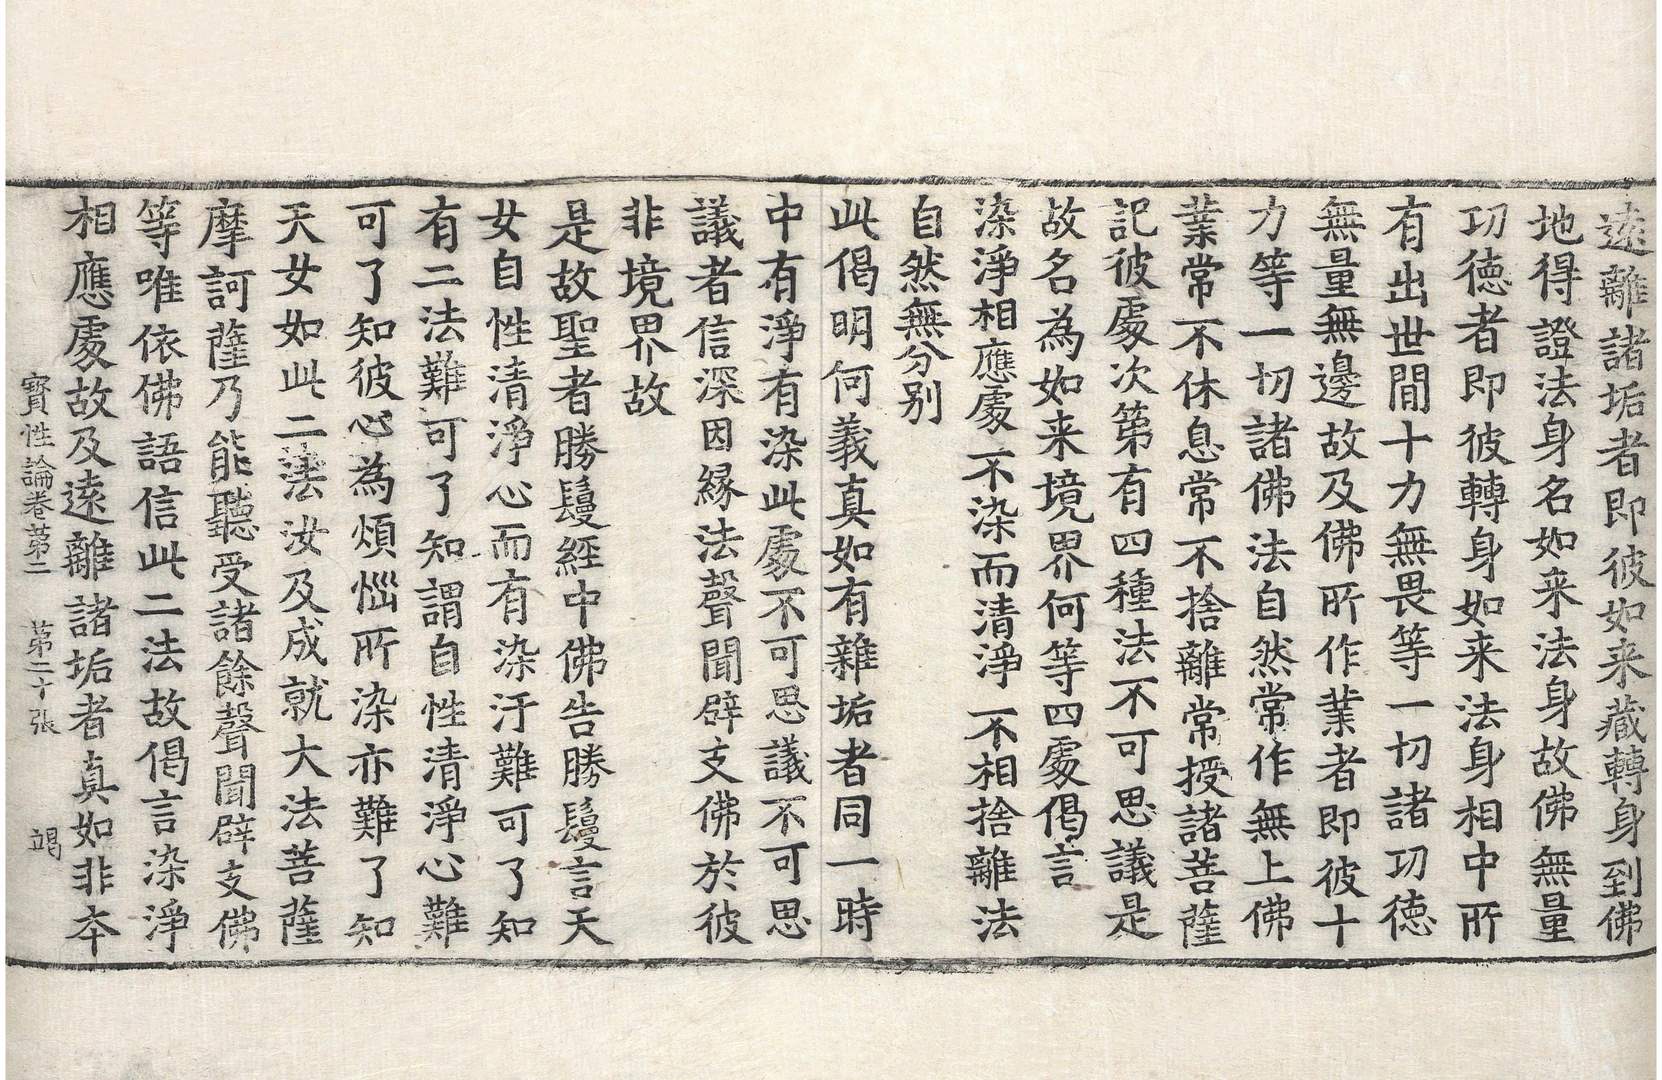 遠離諸垢者即彼如来藏轉身到佛
地得證法身名如来法身故佛無量
功德者即彼轉身如来法身相中所
有出世間十力無畏等一切諸功德
無量無邊故及佛所作業者即彼十
力等一切諸佛法自然常作無上佛
業常不休息常不捨離常授諸菩薩
記彼處次第有四種法不可思議是
故名為如来境界何等四處偈言
染淨相應處　不染而清淨　不相捨離法
自然無分別
此偈明何義真如有雜垢者同一時
中有淨有染此處不可思議不可思
議者信深因緣法聲聞辟支佛於彼
非境界故
是故聖者勝鬘經中佛告勝鬘言天
女自性清淨心而有染汙難可了知
有二法難可了知謂自性清淨心難
可了知彼心為煩惱所染亦難了知
天女如此二法汝及成就大法菩薩
摩訶薩乃能聽受諸餘聲聞辟支佛
等唯依佛語信此二法故偈言染淨
相應處故及遠離諸垢者真如非本
寶性論卷第二　第二十張　竭